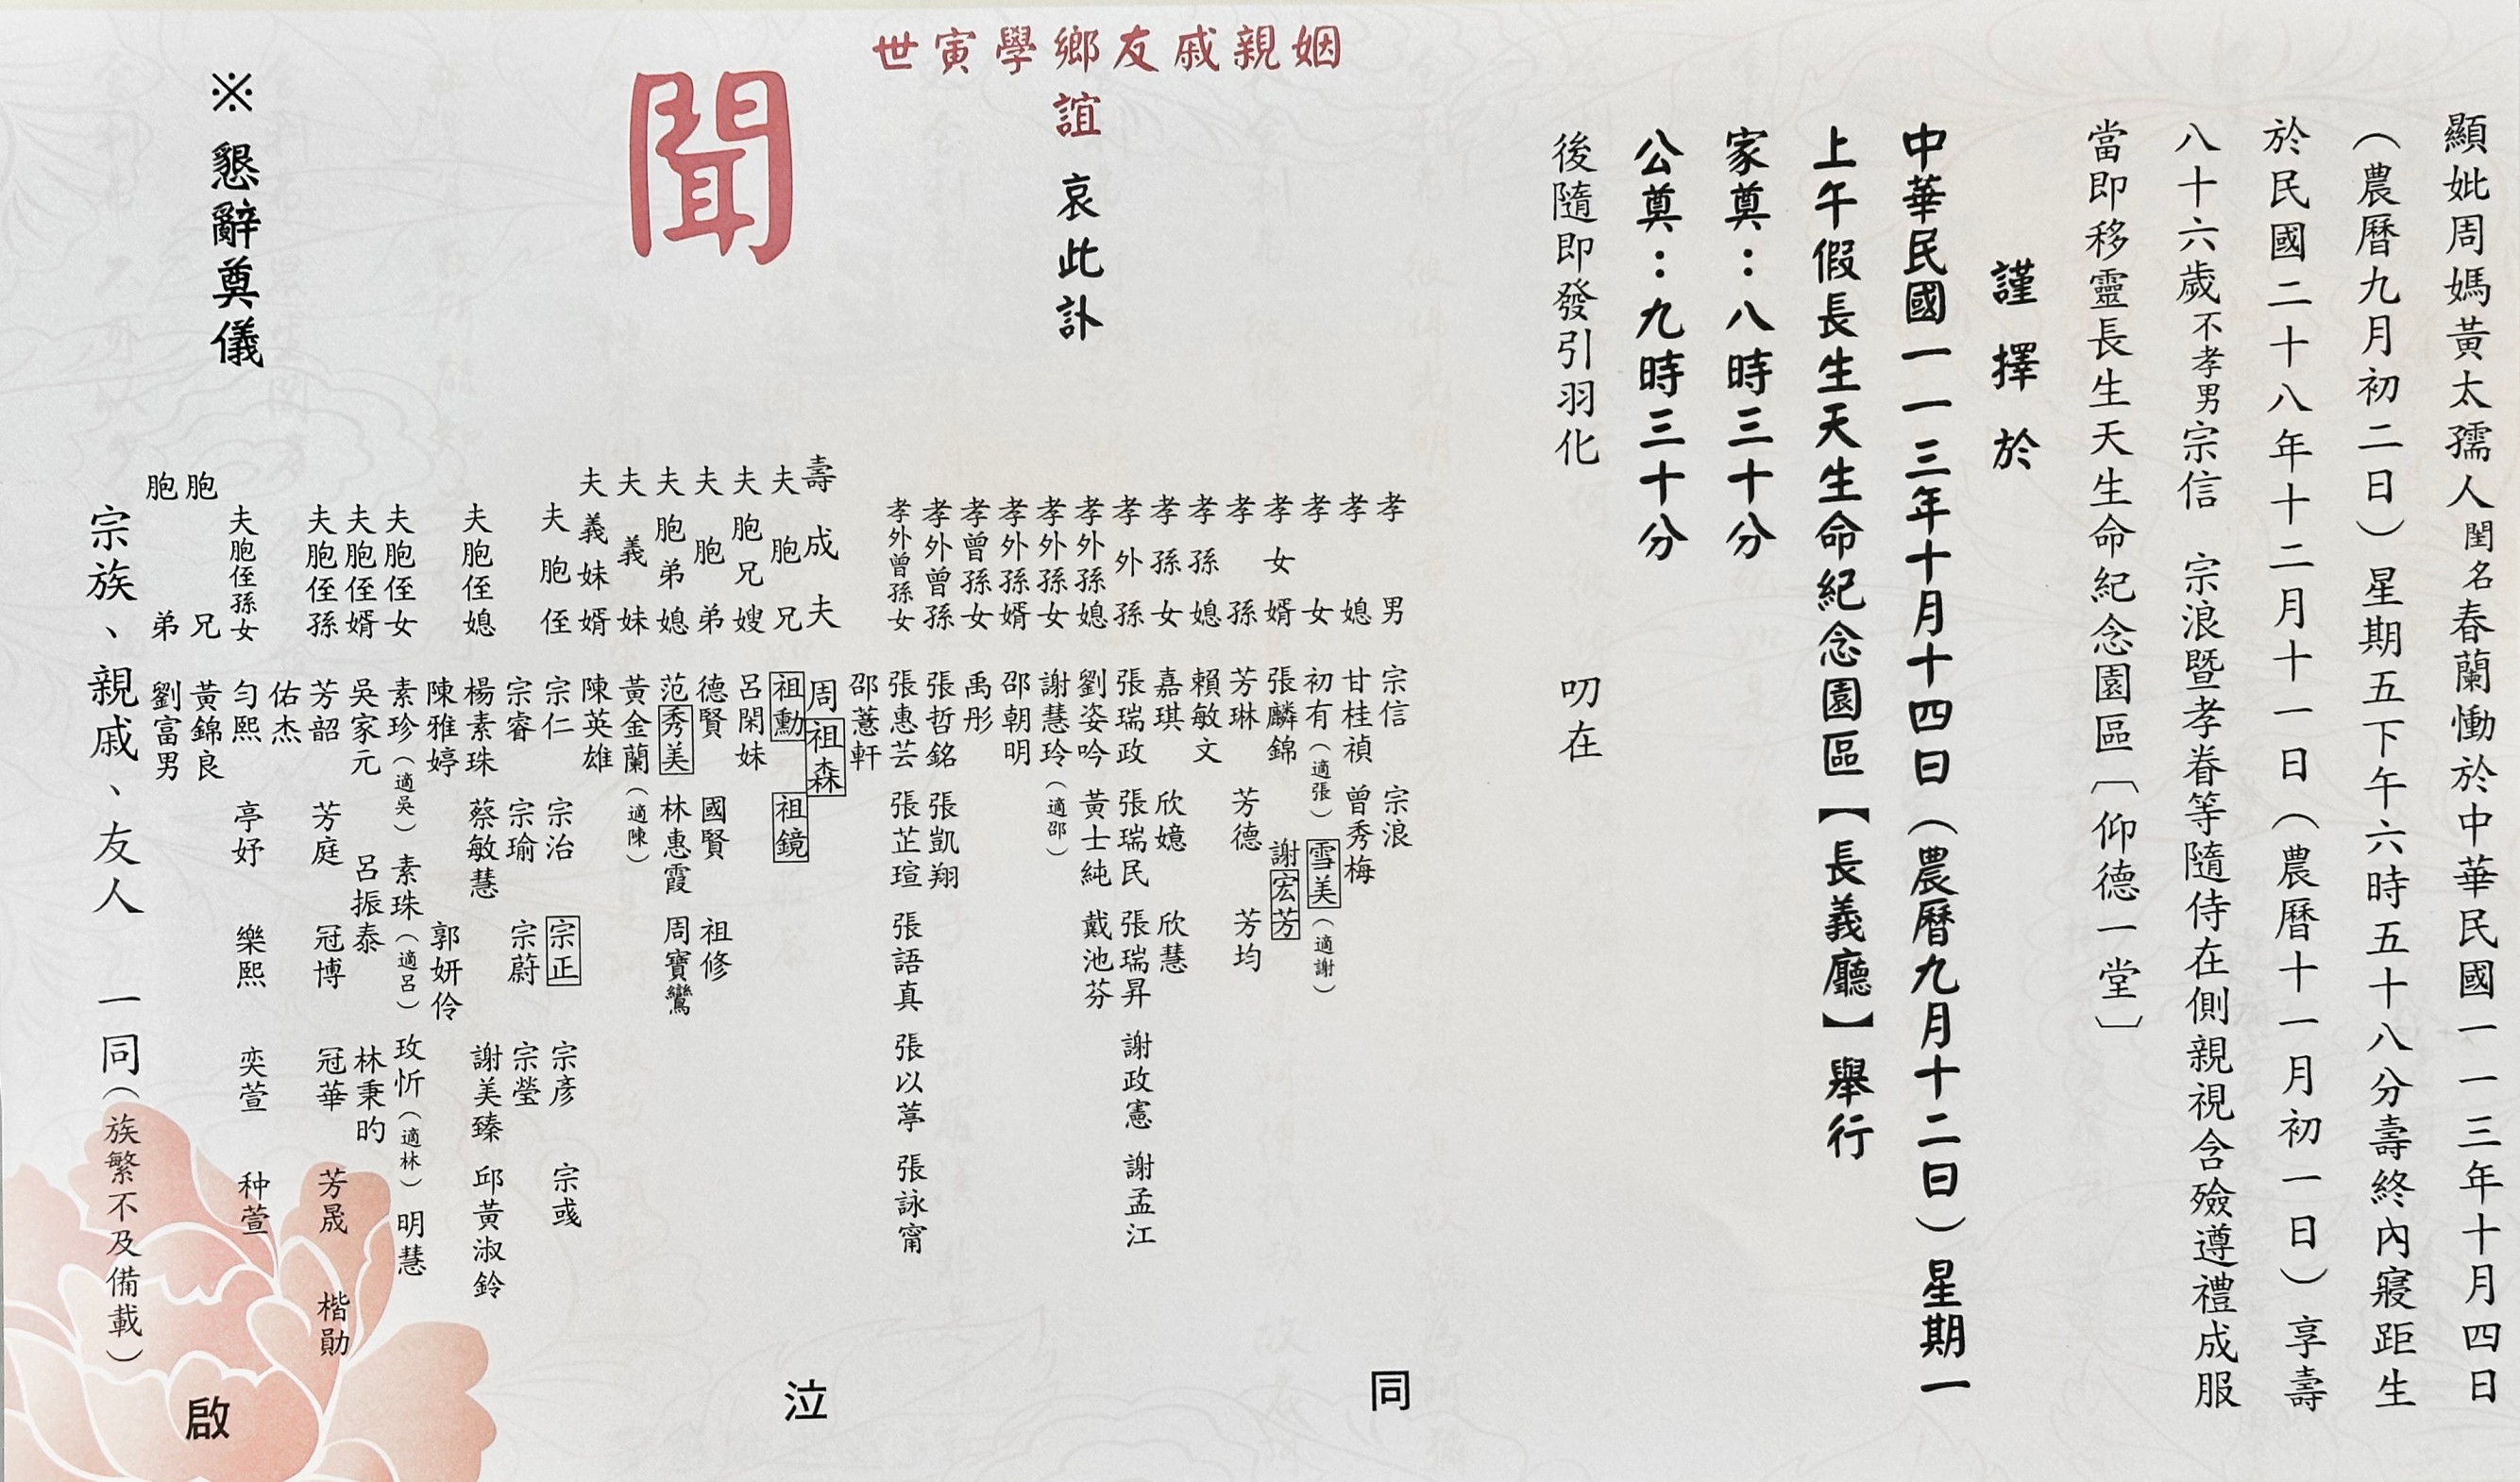 顯妣周媽黃太孺人閨名春蘭慟於中華民國一一三年十月四日
（農曆九月初二日）星期五下午六時五十八分壽終內寢距生
於民國二十八年十二月十一日（農曆十一月初一日）享壽
八十六歲不孝男宗信　宗浪暨孝眷等隨侍在側親視含殮遵禮成服
當即移靈長生天生命紀念園區〔仰德一堂〕
謹擇於
中華民國一一三年十月十四日（農曆九月十二日）星期一
上午假長生天生命紀念園區【長義廳】舉行
家奠：八時三十分
公奠：九時三十分
後隨即發引羽化　叨在
姻親戚友鄉學寅世
誼　哀此訃
聞
孝男　宗信　宗浪
孝媳　甘桂禎　曾秀梅
孝女　初有（適張）　雪美（適謝）
孝女婿　張麟錦　謝宏芳
孝孫　芳琳　芳德　芳均
孝孫媳　賴敏文
孝孫女　嘉琪　欣嬑　欣慧
孝外孫　張瑞政　張瑞民　張瑞昇　謝政憲　謝孟江
孝外孫媳　劉姿吟　黃士純　戴池芬
孝外孫女　謝慧玲（適邵）
孝外孫婿　邵朝明
孝曾孫女　禹彤
孝外曾孫　張哲銘　張凱翔
孝外曾孫女　張惠芸　張芷瑄　張語真　張以葶　張詠甯
邵薏軒
壽成夫　周祖森
夫胞兄　祖勳　祖鏡
夫胞兄嫂　呂閑妹
夫胞弟　德賢　國賢　祖修
夫胞弟媳　范秀美　林惠霞　周寶鸞
夫義妹　黃金蘭（適陳）
夫義妹婿　陳英雄
夫胞侄　宗仁　宗治　宗正　宗彥　宗彧
宗睿　宗瑜　宗蔚　宗瑩
夫胞侄媳　楊素珠　蔡敏慧　謝美臻　邱黃淑鈴
陳雅婷　郭妍伶
夫胞侄女　素珍（適吳）　素珠（適呂）　玫忻（適林）　明慧
夫胞侄婿　吳家元　呂振泰　林秉昀
夫胞侄孫　芳韶　芳庭　冠博　冠華　芳晟　楷勛
佑杰
夫胞侄孫女　勻熙　亭妤　樂熙　奕萱　种萱
胞兄　黃錦良
胞弟　劉富男
宗族、親戚、友人　一同（族繁不及備載）
同
泣
啟
※懇辭奠儀